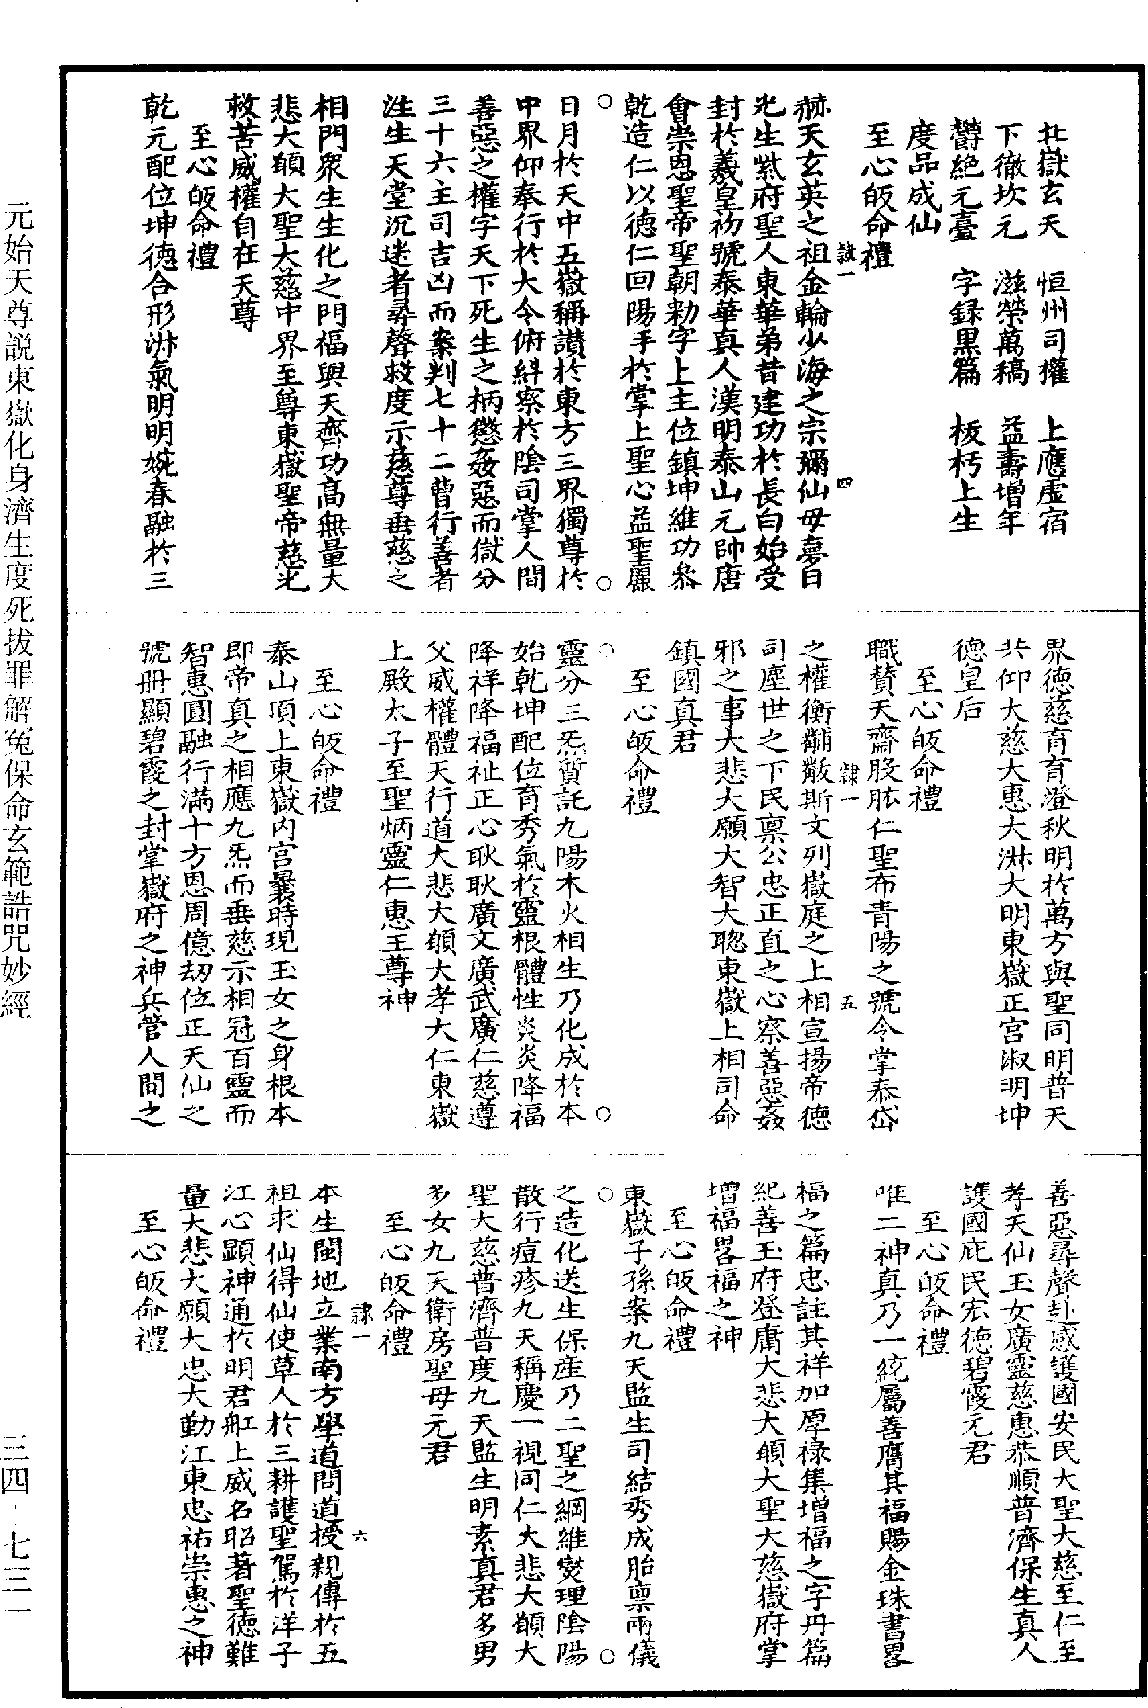 北嶽玄天　恒州司權　上應虛宿
下徹坎元　滋榮萬稿　益壽增年
欝絶元臺　字録黒篇　板朽上生
度品成仙
至心皈命禮
赫天玄英之祖金輪少海之宗彌仙母夢日
光生紫府聖人東華弟昔建功於長白始受
封於羲皇初號泰華真人漢明泰山元帥唐
會崇恩聖帝聖朝勑字上主位鎮坤維功叅
乾造仁以德仁回陽手於掌上聖心益聖麗
日月於天中五嶽稱讃於東方三界獨尊於
中界仰奉行於大令俯紏察於陰司掌人間
善惡之權字天下死生之柄懲姦惡而嶽分
三十六主司吉凶而案判七十二曹行善者
迬生天堂沉迷者尋聲救度示慈尊垂慈之
相門衆生生化之門福與天齊功高無量大
悲大願大聖大慈中界至尊東嶽聖帝慈光
救苦威權自在天尊
至心皈命禮
乾元配位坤德合形淋氣明明婉春融於三
界徳慈育育澄秋明於萬方與聖同明普天
共仰大慈大惠大淋大明東嶽正宮淑明坤
德皇后
至心皈命禮
職賛天齋股肱仁聖布青陽之號令掌泰岱
之權衡黼黻斯文列嶽庭之上相宣揚帝德
司塵世之下民禀公忠正直之心察善惡姦
邪之事大悲大願大智大聦東嶽上相司命
鎮國真君
至心皈命禮
靈分三炁質託九陽木火相生乃化成於本
始乾坤配位育秀氣於靈根體性炎炎降福
降祥降福祉正心耿耿廣文廣武廣仁慈遵
父威權體天行道大悲大願大孝大仁東嶽
上殿太子至聖炳靈仁惠王尊神
至心皈命禮
泰山頂上東嶽内宮曩時現玉女之身根本
即帝真之相應九炁而垂慈示相冠百靈而
智惠圓融行滿十方恩周億刼位正天仙之
號冊顯碧霞之封掌嶽府之神兵管人間之
善惡尋聲赴感護國安民大聖大慈至仁至
孝天仙玉女廣靈慈惠恭順普濟保生真人
護國庇民宏德碧霞元君
至心皈命禮
唯二神真乃一統屬善膺其福賜金珠書畧
福之篇忠註其祥加厚禄集增福之字丹篇
紀善玉府登庸大悲大願大聖大慈嶽府掌
增福畧福之神
至心皈命禮
東嶽子孫案九天監生司結秀成胎禀兩儀
之造化送生保産乃二聖之綱維爕理陰陽
散行痘疹九天稱慶一視同仁大悲大願大
聖大慈普濟普度九天監生明素真君多男
多女九天衛房聖母元君
至心皈命禮
本生閩地立業南方學道問道授親傳於五
祖求仙得仙使草人於三耕護聖駕於洋子
江心顕神通於明君舡上威名昭著聖徳難
量大悲大願大忠大勤江東忠祐崇惠之神
至心皈命禮
隷一　四
隷一　五
隷一　六
元始天尊説東嶽化身濟生度死拔罪解冤保命玄範誥咒妙經
三四‧七三一